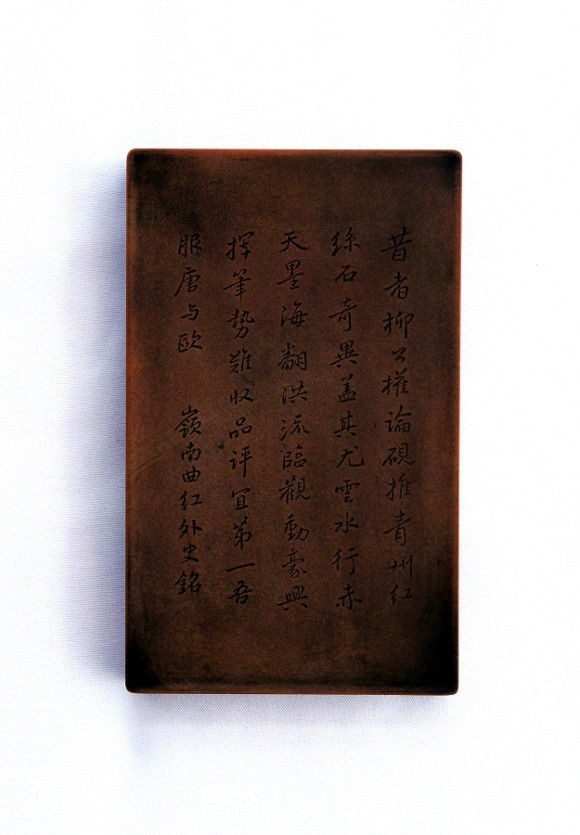 昔者柳公摧論硯推青州紅
絲石奇異盖其尤雲水行赤
天墨海翻洪流臨觀動豪興
揮筆勢難收品評宜苐一吾
服唐与欧 嶺南曲紅外史銘